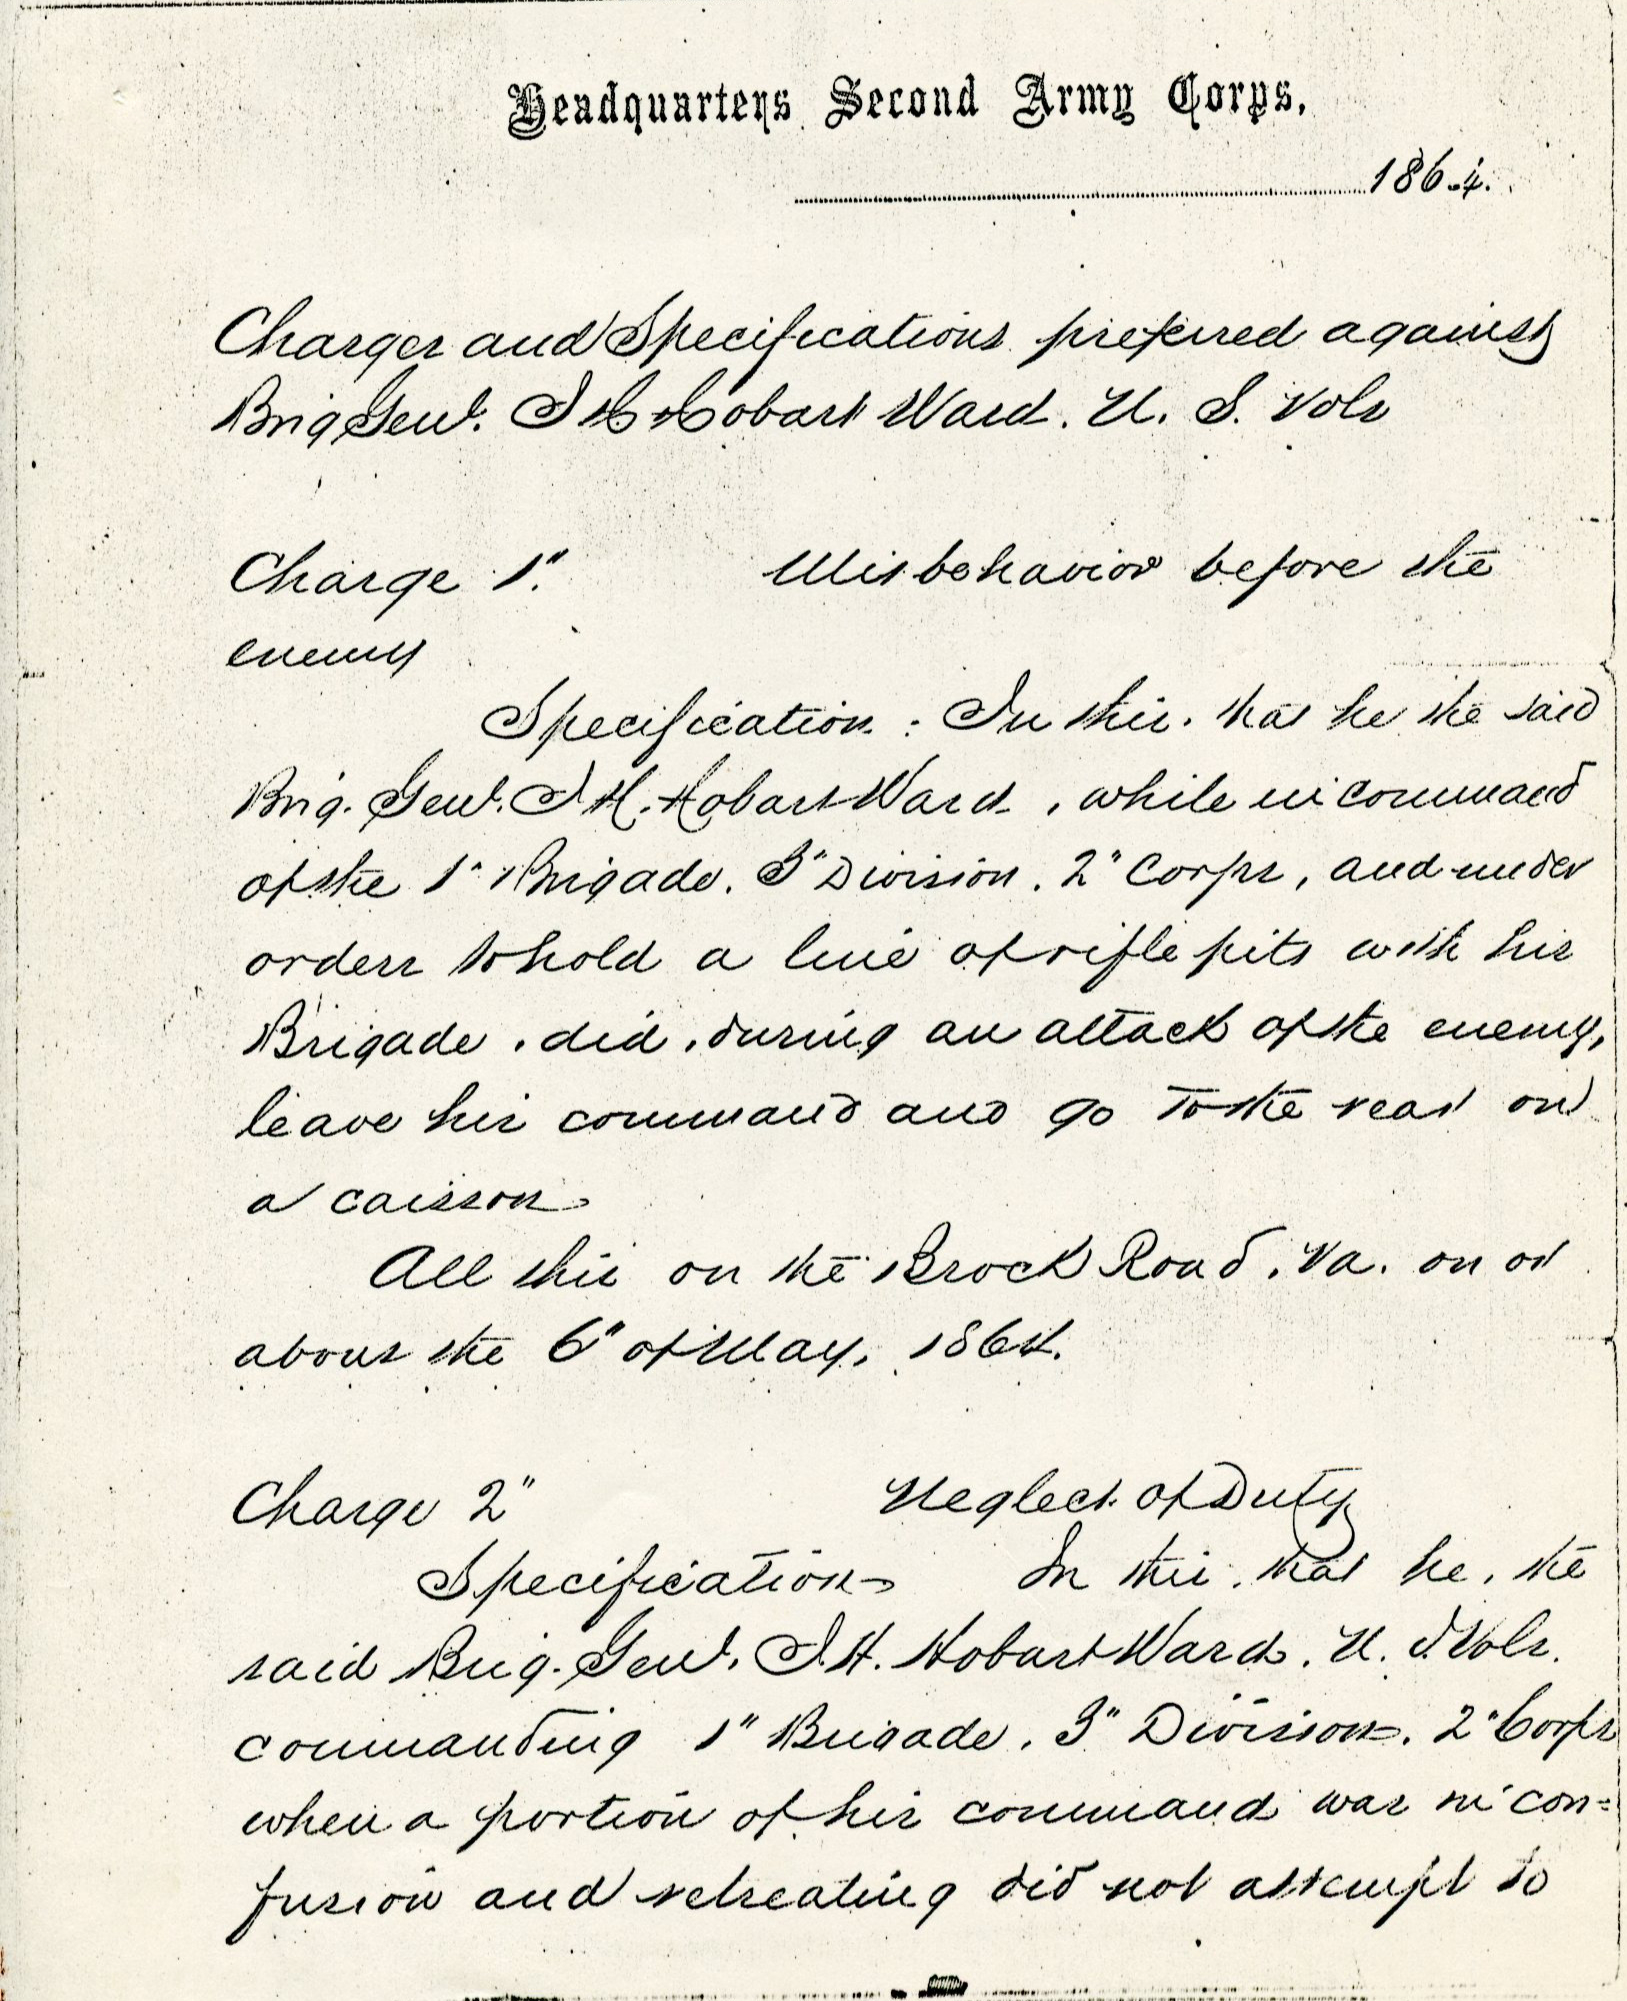 Headquarters Second Army Corps,
1864.
Charges and Specifications preferred against
Brig Genl. J H Hobart Ward. U. S. Vols
Charge 1". Misbehavior before the
enemy
Specification : In this. that he the said
Brig. Genl. J H. Hobart Ward, while in command
of the 1" Brigade. 3" Division. 2" Corps, and under
orders to hold a line of rifle pits with his
Brigade. did, during an attack of the enemy,
leave his command and go to the rear on
a caisson
All this on the Brock Road. Va. on or
about the 6" of May, 1864.
Charge 2" Neglect of Duty
Specification In this. that he, the
said Brig. Genl. J. H. Hobart Ward. U. S. Vols.
commanding 1" Brigade. 3" Division. 2" Corps
when a portion of his command was in con=
fusion and retreating did not attempt to